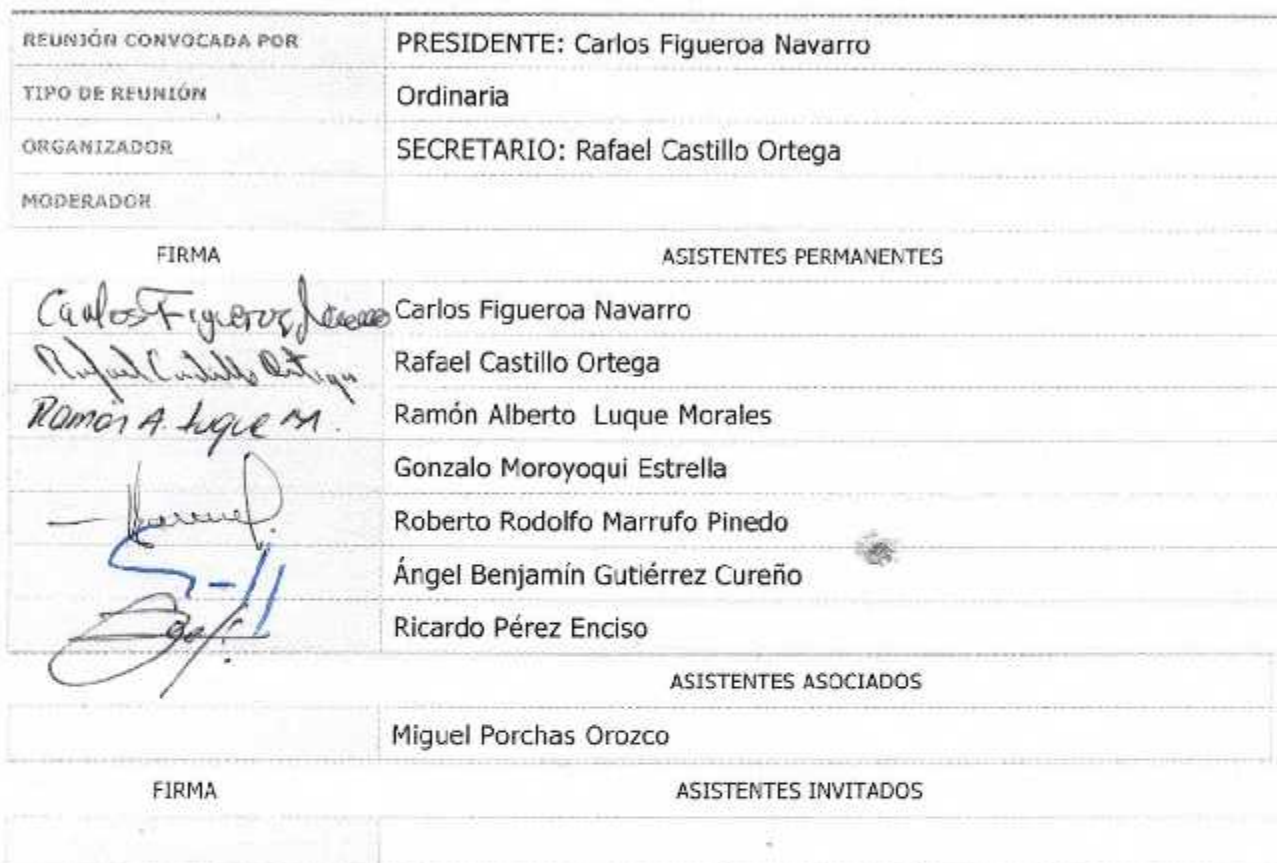 REUNIÓN CONVOCADA POR PRESIDENTE: Carlos Figueroa Navarro
TIPO DE REUNIÓN Ordinaria
ORGANIZADOR SECRETARIO: Rafael Castillo Ortega
MODERADOR
FIRMA ASISTENTES PERMANENTES
Carlos Figueroa Navarro Carlos Figueroa Navarro
Rafael Castillo Ortega Rafael Castillo Ortega
Ramón A. Luque M. Ramón Alberto Luque Morales
Gonzalo Moroyoqui Estrella
Roberto Rodolfo Marrufo Pinedo
Ángel Benjamín Gutiérrez Cureño
Ricardo Pérez Enciso
ASISTENTES ASOCIADOS
Miguel Porchas Orozco
FIRMA ASISTENTES INVITADOS